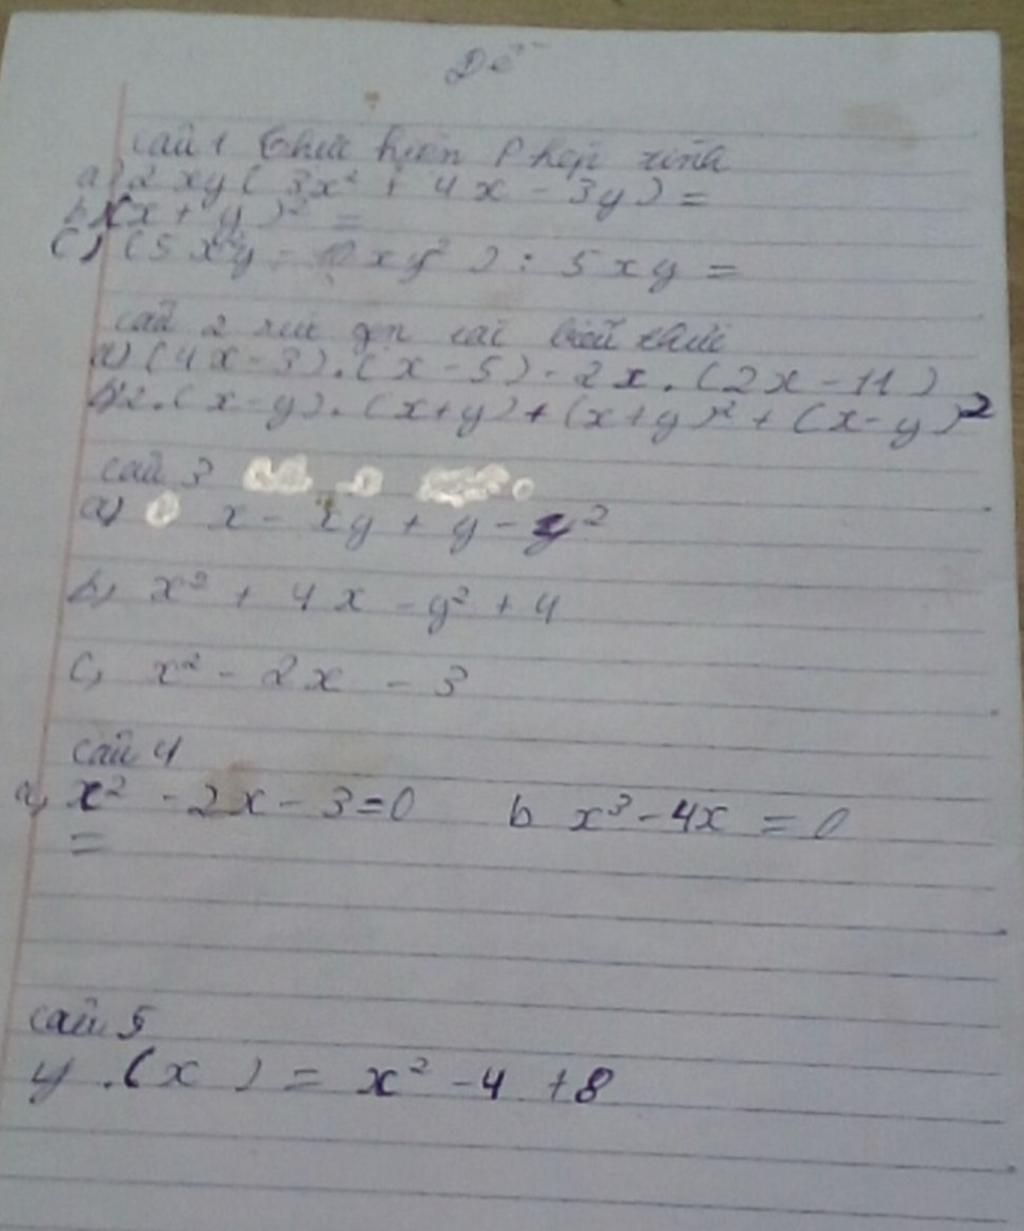 Đề
câu 1 Thực hiện Phép tính
a) 2xy( 3x² + 4x - 3y) =
b) (x + y)² =
c) (5x²y - 10xy²) : 5xy =
câu 2 rút gọn các biểu thức
a) (4x-3).(x-5)-2x.(2x-11)
b) 2.(x-y).(x+y)+(x+y)²+(x-y)²
câu 3
a) x - xy + y - y²
b, x² + 4x - y² + 4
c, x² - 2x - 3
câu 4
a, x² - 2x - 3=0 b x³-4x = 0
=
câu 5
y.(x) = x² -4 +8